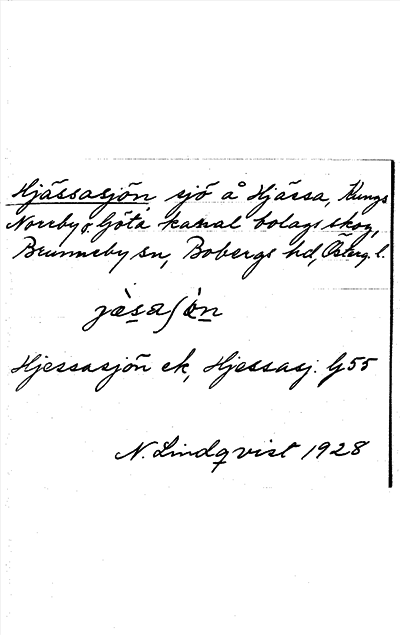 Hjässasjön sjö å Hjässa, Kungs
Norrby o. Göta kanal bolags skog,
Brunneby sn, Bobergs hd, Österg. l.
jæ̀sasjøn
Hjessasjön ek, Hjessasj. G55
N. Lindqvist 1928